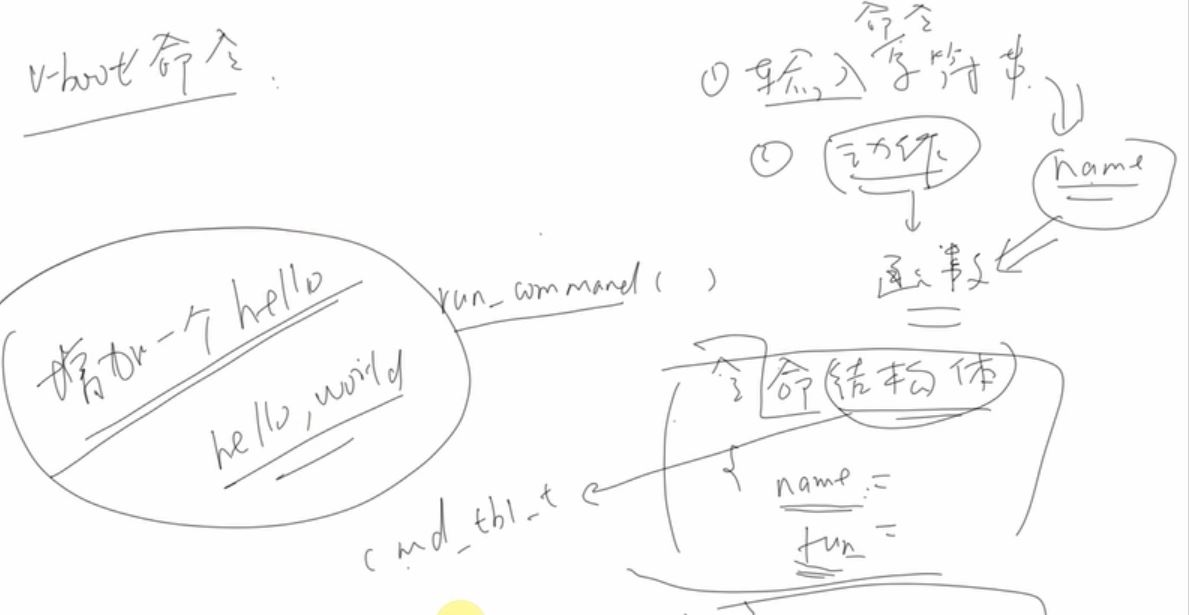 u-boot 命令
命令
① 输入字符串
name
② 动作
函数
run_command ( )
增加一个 hello
hello, world
令命结构体
{
name =
fun =
cmd_tbl_t